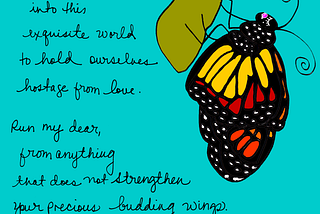 into this
exquisite world
to hold ourselves
hostage from love.
Run my dear,
from anything
that does not strengthen
your precious budding wings.